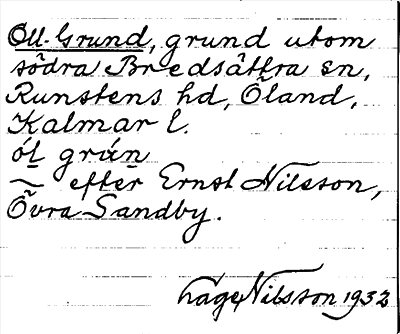 Öll-Grund, grund utom
södra Bredsättra sn,
Runstens hd, Öland,
Kalmar l.
ól grún
~ efter Ernst Nilsson,
Övra Sandby.
Hage Nilsson 1932